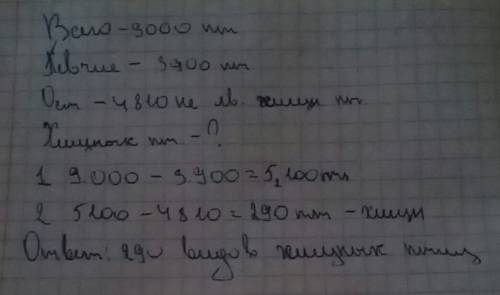 Всего - 9000 пт
Певчие - 3900 пт
Ост - 4810 не яв. хищн пт.
Хищных пт - ?
1 9.000 - 3.900 = 5,100 пт
2 5100 - 4810 = 290 пт - хищн
Ответ: 290 видов хищных птиц